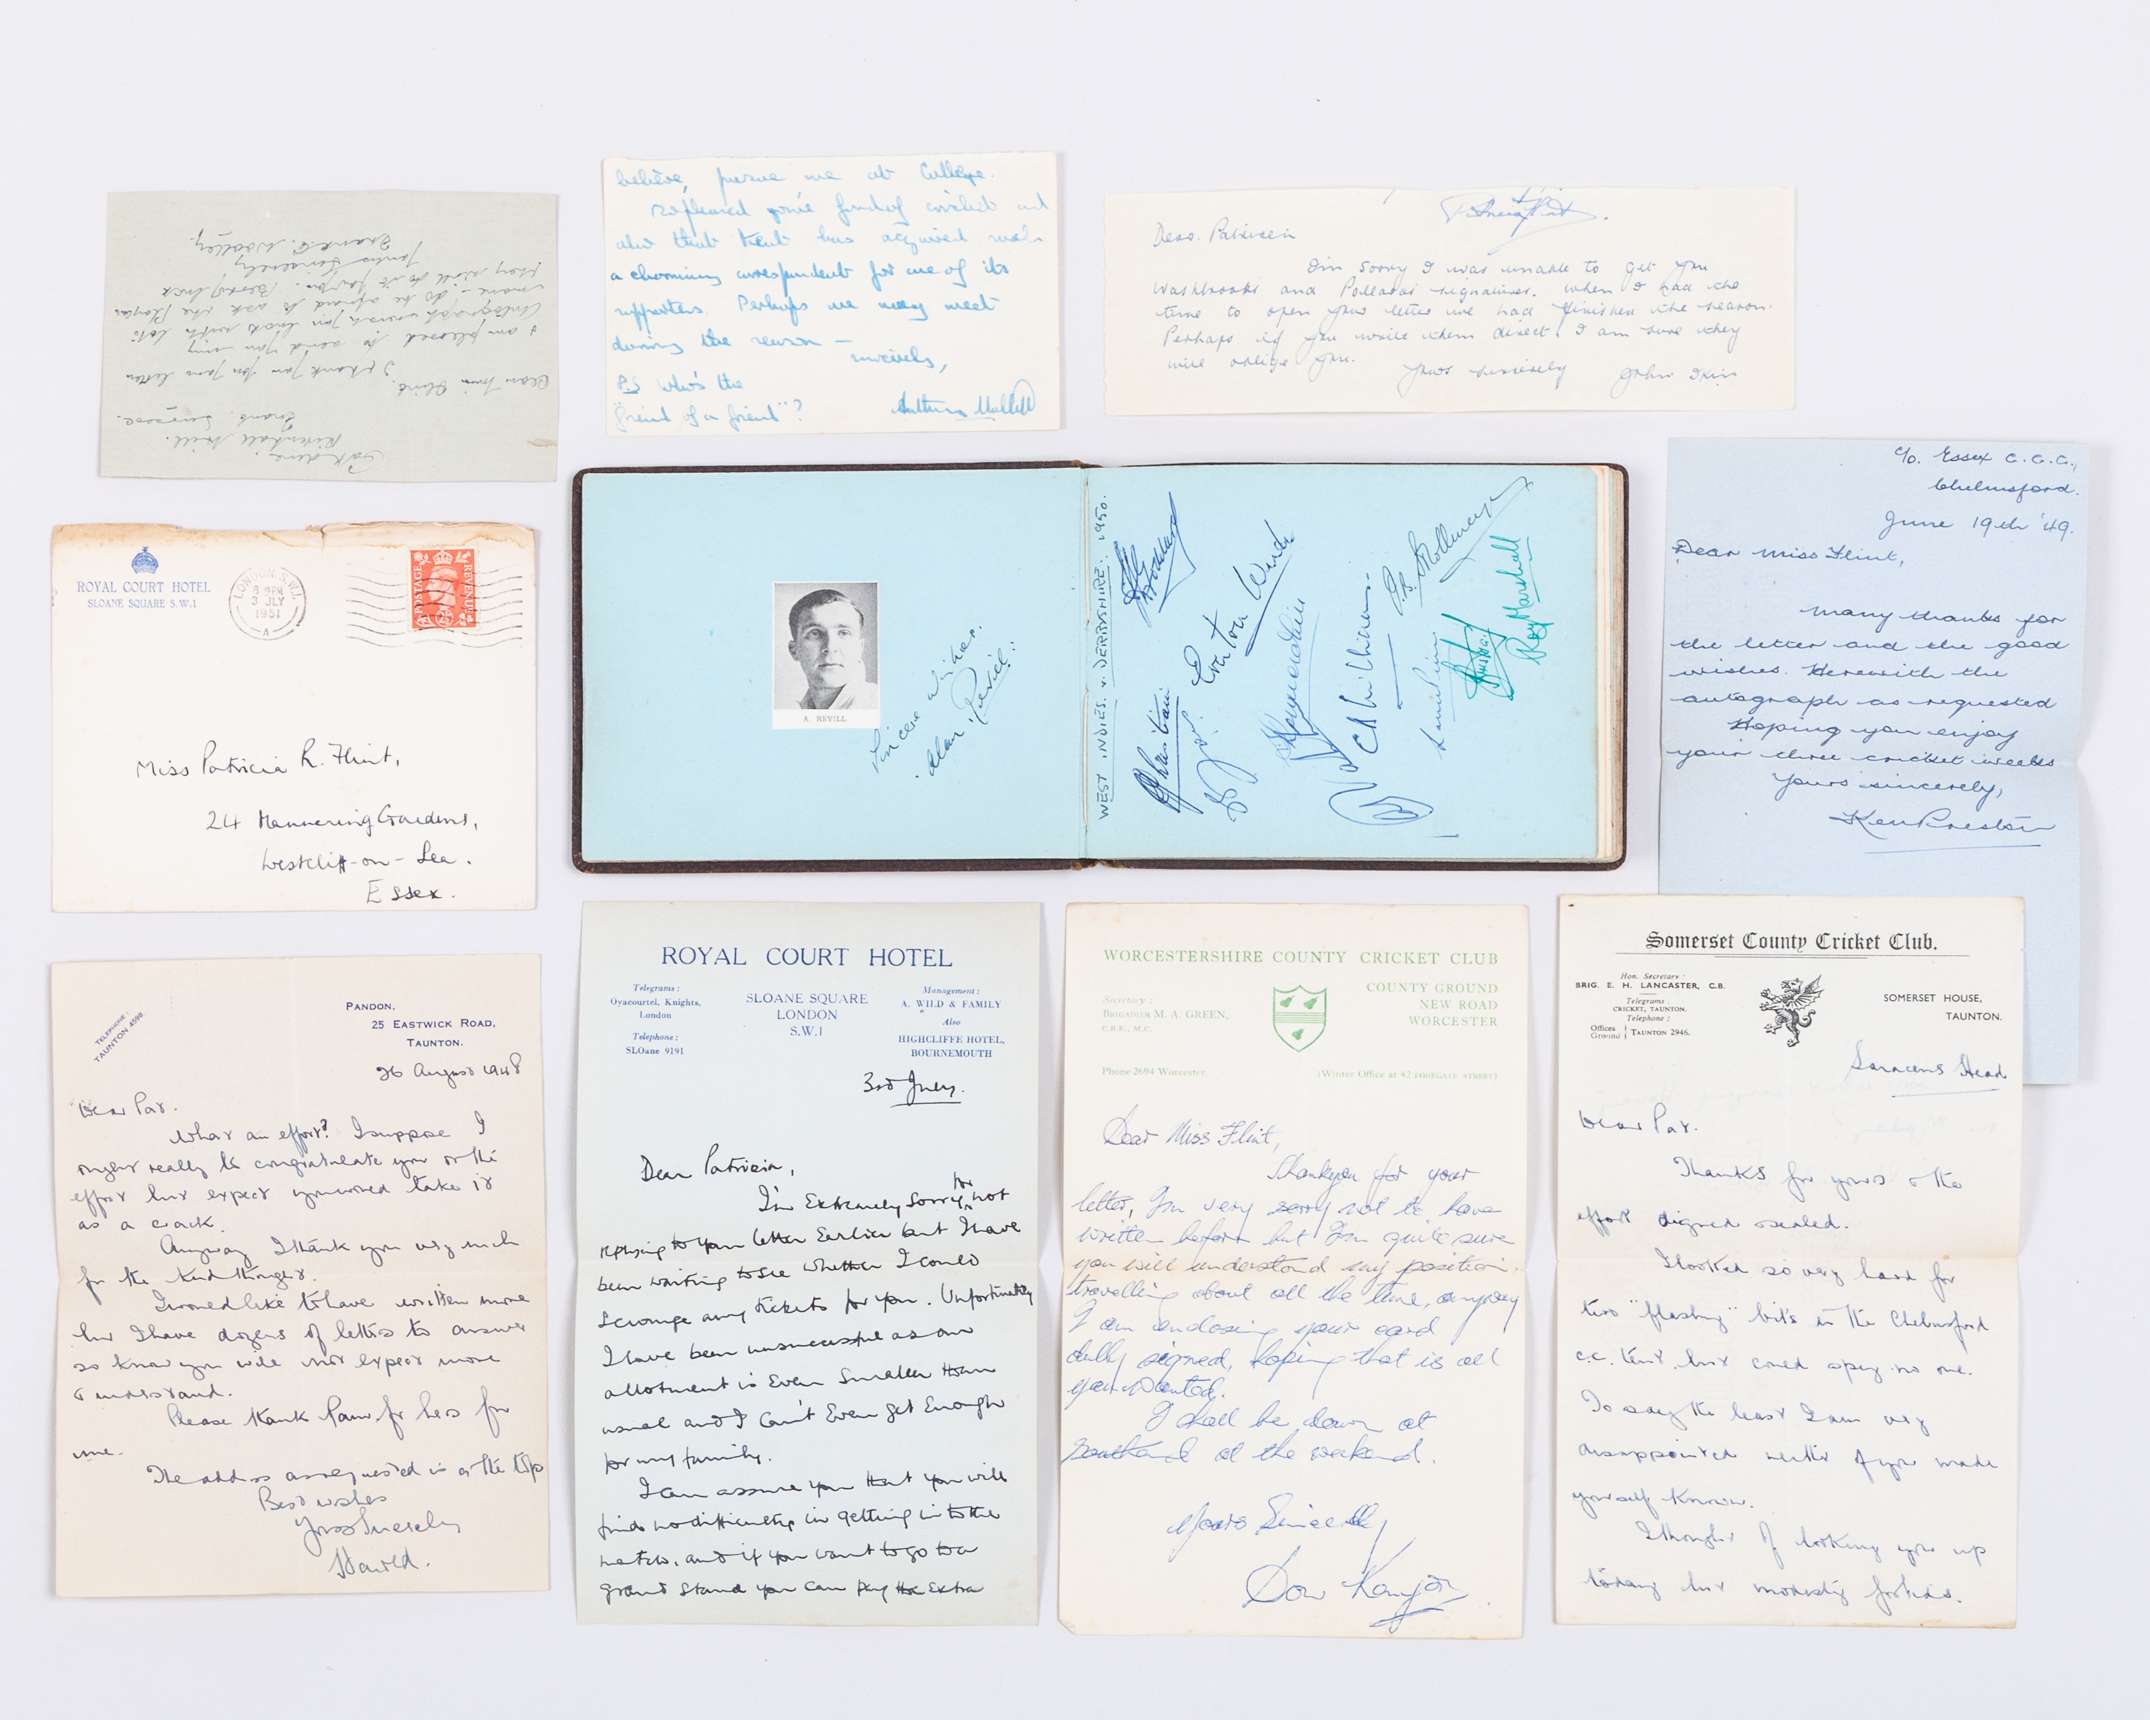 Oakdene.
Rusthall
Dear Miss Flint.
I thank you for your letter
I am pleased to send you my
Autograph wish you luck with lots
more - do be afraid to ask the Player
they
Yours Sincerely
Frank E. Woolley.
believe, pursue me at College.
So pleased you're fond of cricket and
also that Kent has acquired such
a charming correspondent for one of its
supporters. Perhaps we may meet
during the season -
sincerely,
P.S Who's the
"friend of a friend"?
Patricia Flint.
Dear Patricia
I'm sorry I was unable to get you
Washbrooks and Pollards signatures. When I had the
time to open your letter we had finished the season.
Perhaps if you write them direct I am sure they
will oblige you.
Yours sincerely John Ikin
C/o. Essex C.C.C.,
Chelmsford.
June 19th '49.
Dear Miss Flint,
Many thanks for
the letter and the good
wishes. Herewith the
autograph as requested
Hoping you enjoy
your three cricket weeks
Yours sincerely,
Ken Preston
ROYAL COURT HOTEL
SLOANE SQUARE S.W.1
LONDON S.W.1
8 PM
3 JLY
1951
A
POSTAGE
REVENUE
Miss Patricia R. Flint,
24 Mannering Gardens,
Westcliff-on-Sea.
Essex.
A. REVILL
Sincere Wishes.
Alan Revill.
WEST INDIES. v. DERBYSHIRE. 1950.
R J Christiani
Everton Weekes
C B Williams
J. B. Stollmeyer
Roy Marshall
TELEPHONE:
TAUNTON 4598.
PANDON,
25 EASTWICK ROAD,
TAUNTON.
26 August 1948
Dear Pat.
What an effort? I suppose I
ought really to congratulate you on the
effort but expect you would take it
as a crack.
Anyway I thank you very much
for the kind thought.
I would like to have written more
but I have dozens of letters to answer
so know you will not expect more
& understand.
Please thank Pam for hers for
me.
The address as requested is at the top
Best wishes
Yours Sincerely
Harold.
ROYAL COURT HOTEL
Telegrams:
Oyacourtel, Knights,
London
Telephone:
SLOane 9191
SLOANE SQUARE
LONDON
S.W.1
Management:
A. WILD & FAMILY
Also
HIGHCLIFFE HOTEL,
BOURNEMOUTH
3rd July.
Dear Patricia,
I'm Extremely Sorry for not
replying to your letter Earlier but I have
been waiting to see whether I could
Scrounge any tickets for you. Unfortunately
I have been unsuccessful as our
allotment is Even Smaller than
usual and I can't Even get Enough
for my family.
I can assure you that you will
find no difficulty in getting into the
match, and if you want to go to a
grand stand you can pay the Extra
WORCESTERSHIRE COUNTY CRICKET CLUB
Secretary:
BRIGADIER M. A. GREEN,
C.B.E., M.C.
COUNTY GROUND
NEW ROAD
WORCESTER
Phone 2694 Worcester
(Winter Office at 82 FOREGATE STREET)
Dear Miss Flint,
Thankyou for your
letter, I'm very sorry not to have
written before but I'm quite sure
you will understand my position,
travelling about all the time, anyway
I am enclosing your card
dully signed, hoping that is all
you wanted.
I shall be down at
Southend at the weekend.
Yours Sincerely
Don Kenyon
Somerset County Cricket Club.
Hon. Secretary:
BRIG. E. H. LANCASTER, C.B.
Telegrams:
CRICKET, TAUNTON.
Telephone:
Offices
Ground
TAUNTON 2946.
SOMERSET HOUSE,
TAUNTON.
Saracens Head
Dear Pat.
Thanks for yours & the
effort signed & sealed.
I looked so very hard for
two "flashy" bits in the Chelmsford
C.C. tent, but could spy no one.
To say the least I am very
disappointed neither of you made
yourself known.
I thought of looking you up
today but modesty forbids.